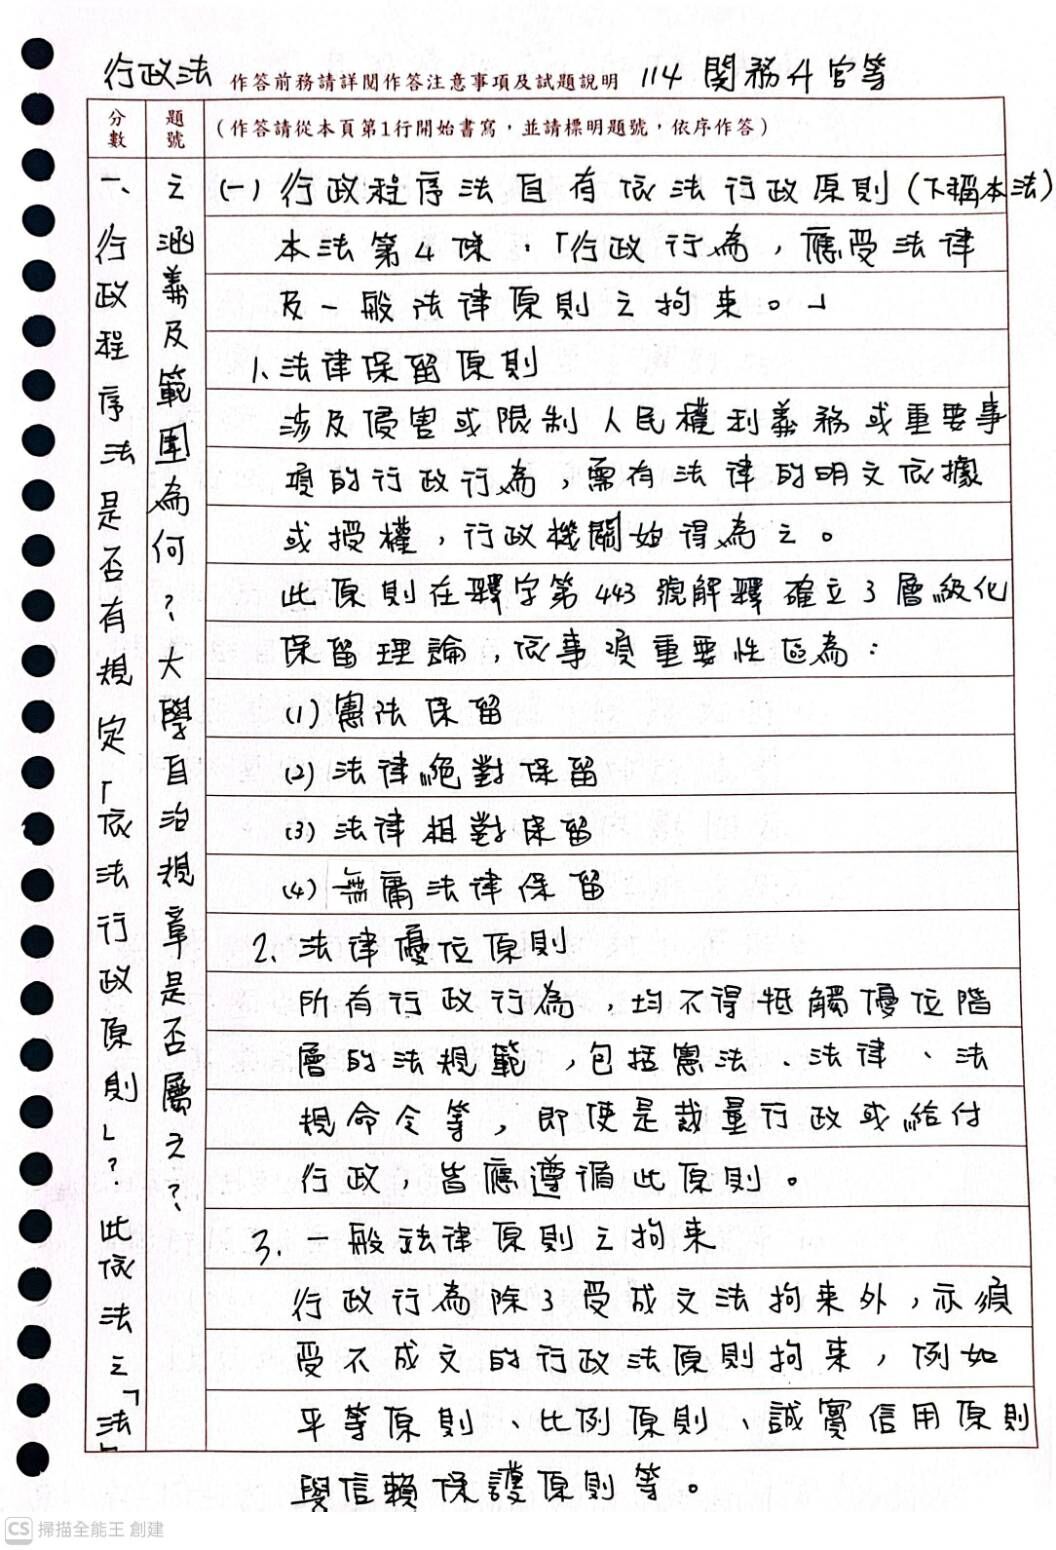 行政法 作答前務請詳閱作答注意事項及試題說明 114 関務升官等
分數
題號
(作答請從本頁第1行開始書寫,並請標明題號,依序作答)
一、行政程序法是否有規定「依法行政原則」?此依法之「法」
之涵義及範圍為何?大學自治規章是否屬之?
(一) 行政程序法自有依法行政原則(下稱本法)
本法第4條,「行政行為,應受法律
及一般法律原則之拘束。」
1、法律保留原則
涉及侵害或限制人民權利義務或重要事
項的行政行為,需有法律的明文依據
或授權,行政機關始得為之。
此原則在釋字第443號解釋確立3層級化
保留理論,依事項重要性區為:
(1) 憲法保留
(2) 法律絕對保留
(3) 法律相對保留
(4) 無庸法律保留
2、法律優位原則
所有行政行為,均不得牴觸優位階
層的法規範,包括憲法、法律、法
規命令等,即使是裁量行政或給付
行政,皆應遵循此原則。
3、一般法律原則之拘束
行政行為除了受成文法拘束外,亦須
受不成文的行政法原則拘束,例如
平等原則、比例原則、誠實信用原則
與信賴保護原則等。
CS 掃描全能王 創建